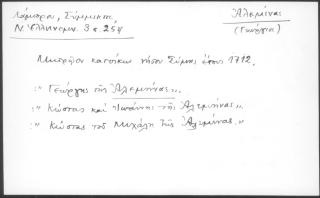 Λάμπρου, Σύμμικτα,
Ν. Ἑλληνομν. 3 σ. 254
Ἀλεμῆνας
(Γεώργιος)
κατοίκων νήσου Σύμης ἔτους 1712.
:" Γεώργης τῆς Ἀλεμήνας".
:" Κώστας καὶ Ἰωάννης τῆς Ἀλεμήνας".
:" Κώστας τοῦ Μιχάλη τῆς Ἀλεμήνας".